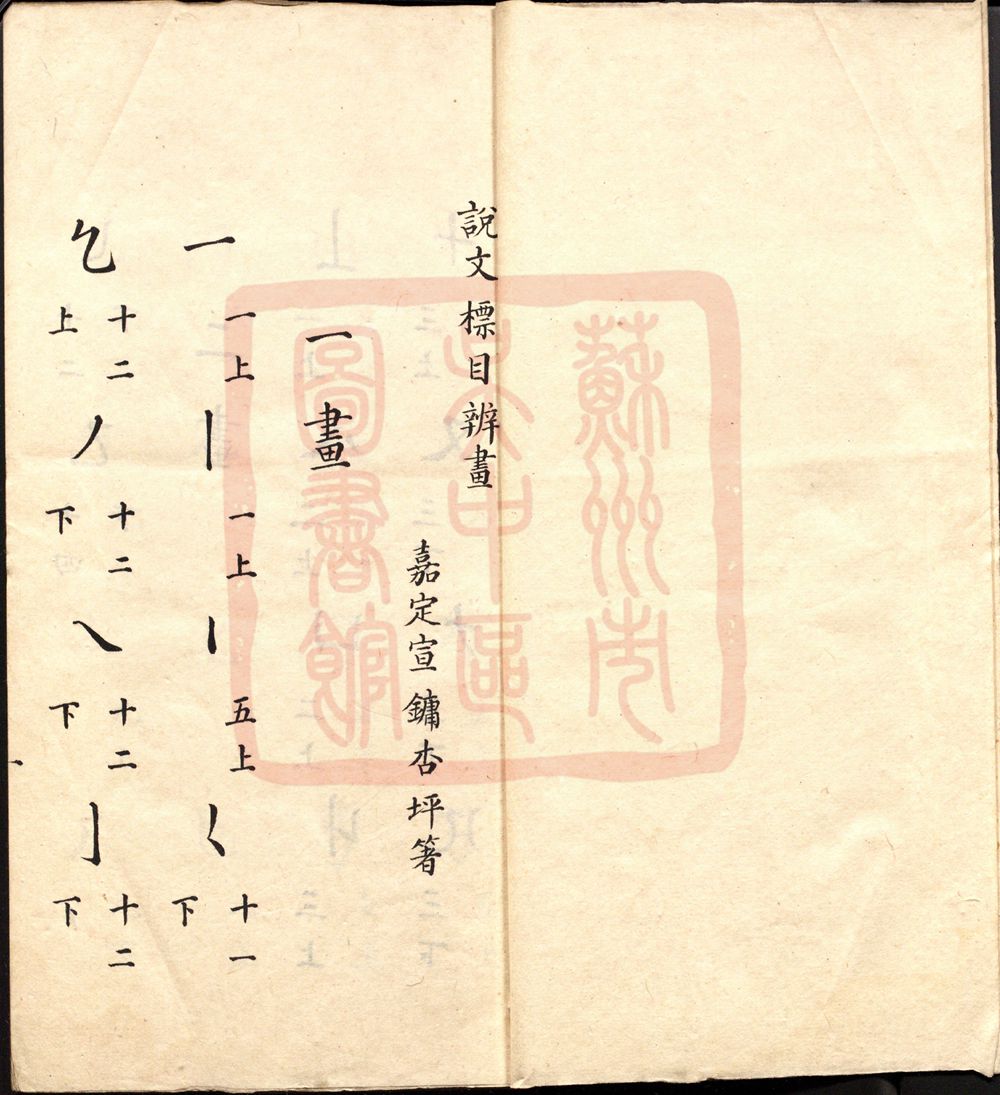 蘇州市
吴中區
圖書館
說文標目辨畫
嘉定宣鏞杏坪箸
一畫
一 一上 丨 一上 丶 五上 𡿨 十一下
乞 十二上 丿 十二下 乀 十二下 亅 十二下